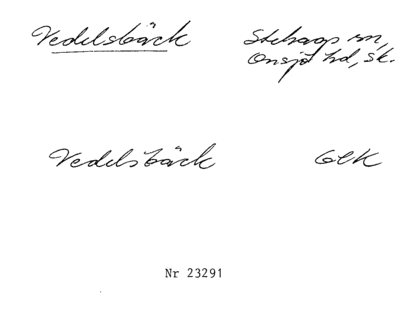 Vedelsbäck
Stehags sn,
Onsjö hd, Sk.
Vedelsbäck
GEK
Nr 23291